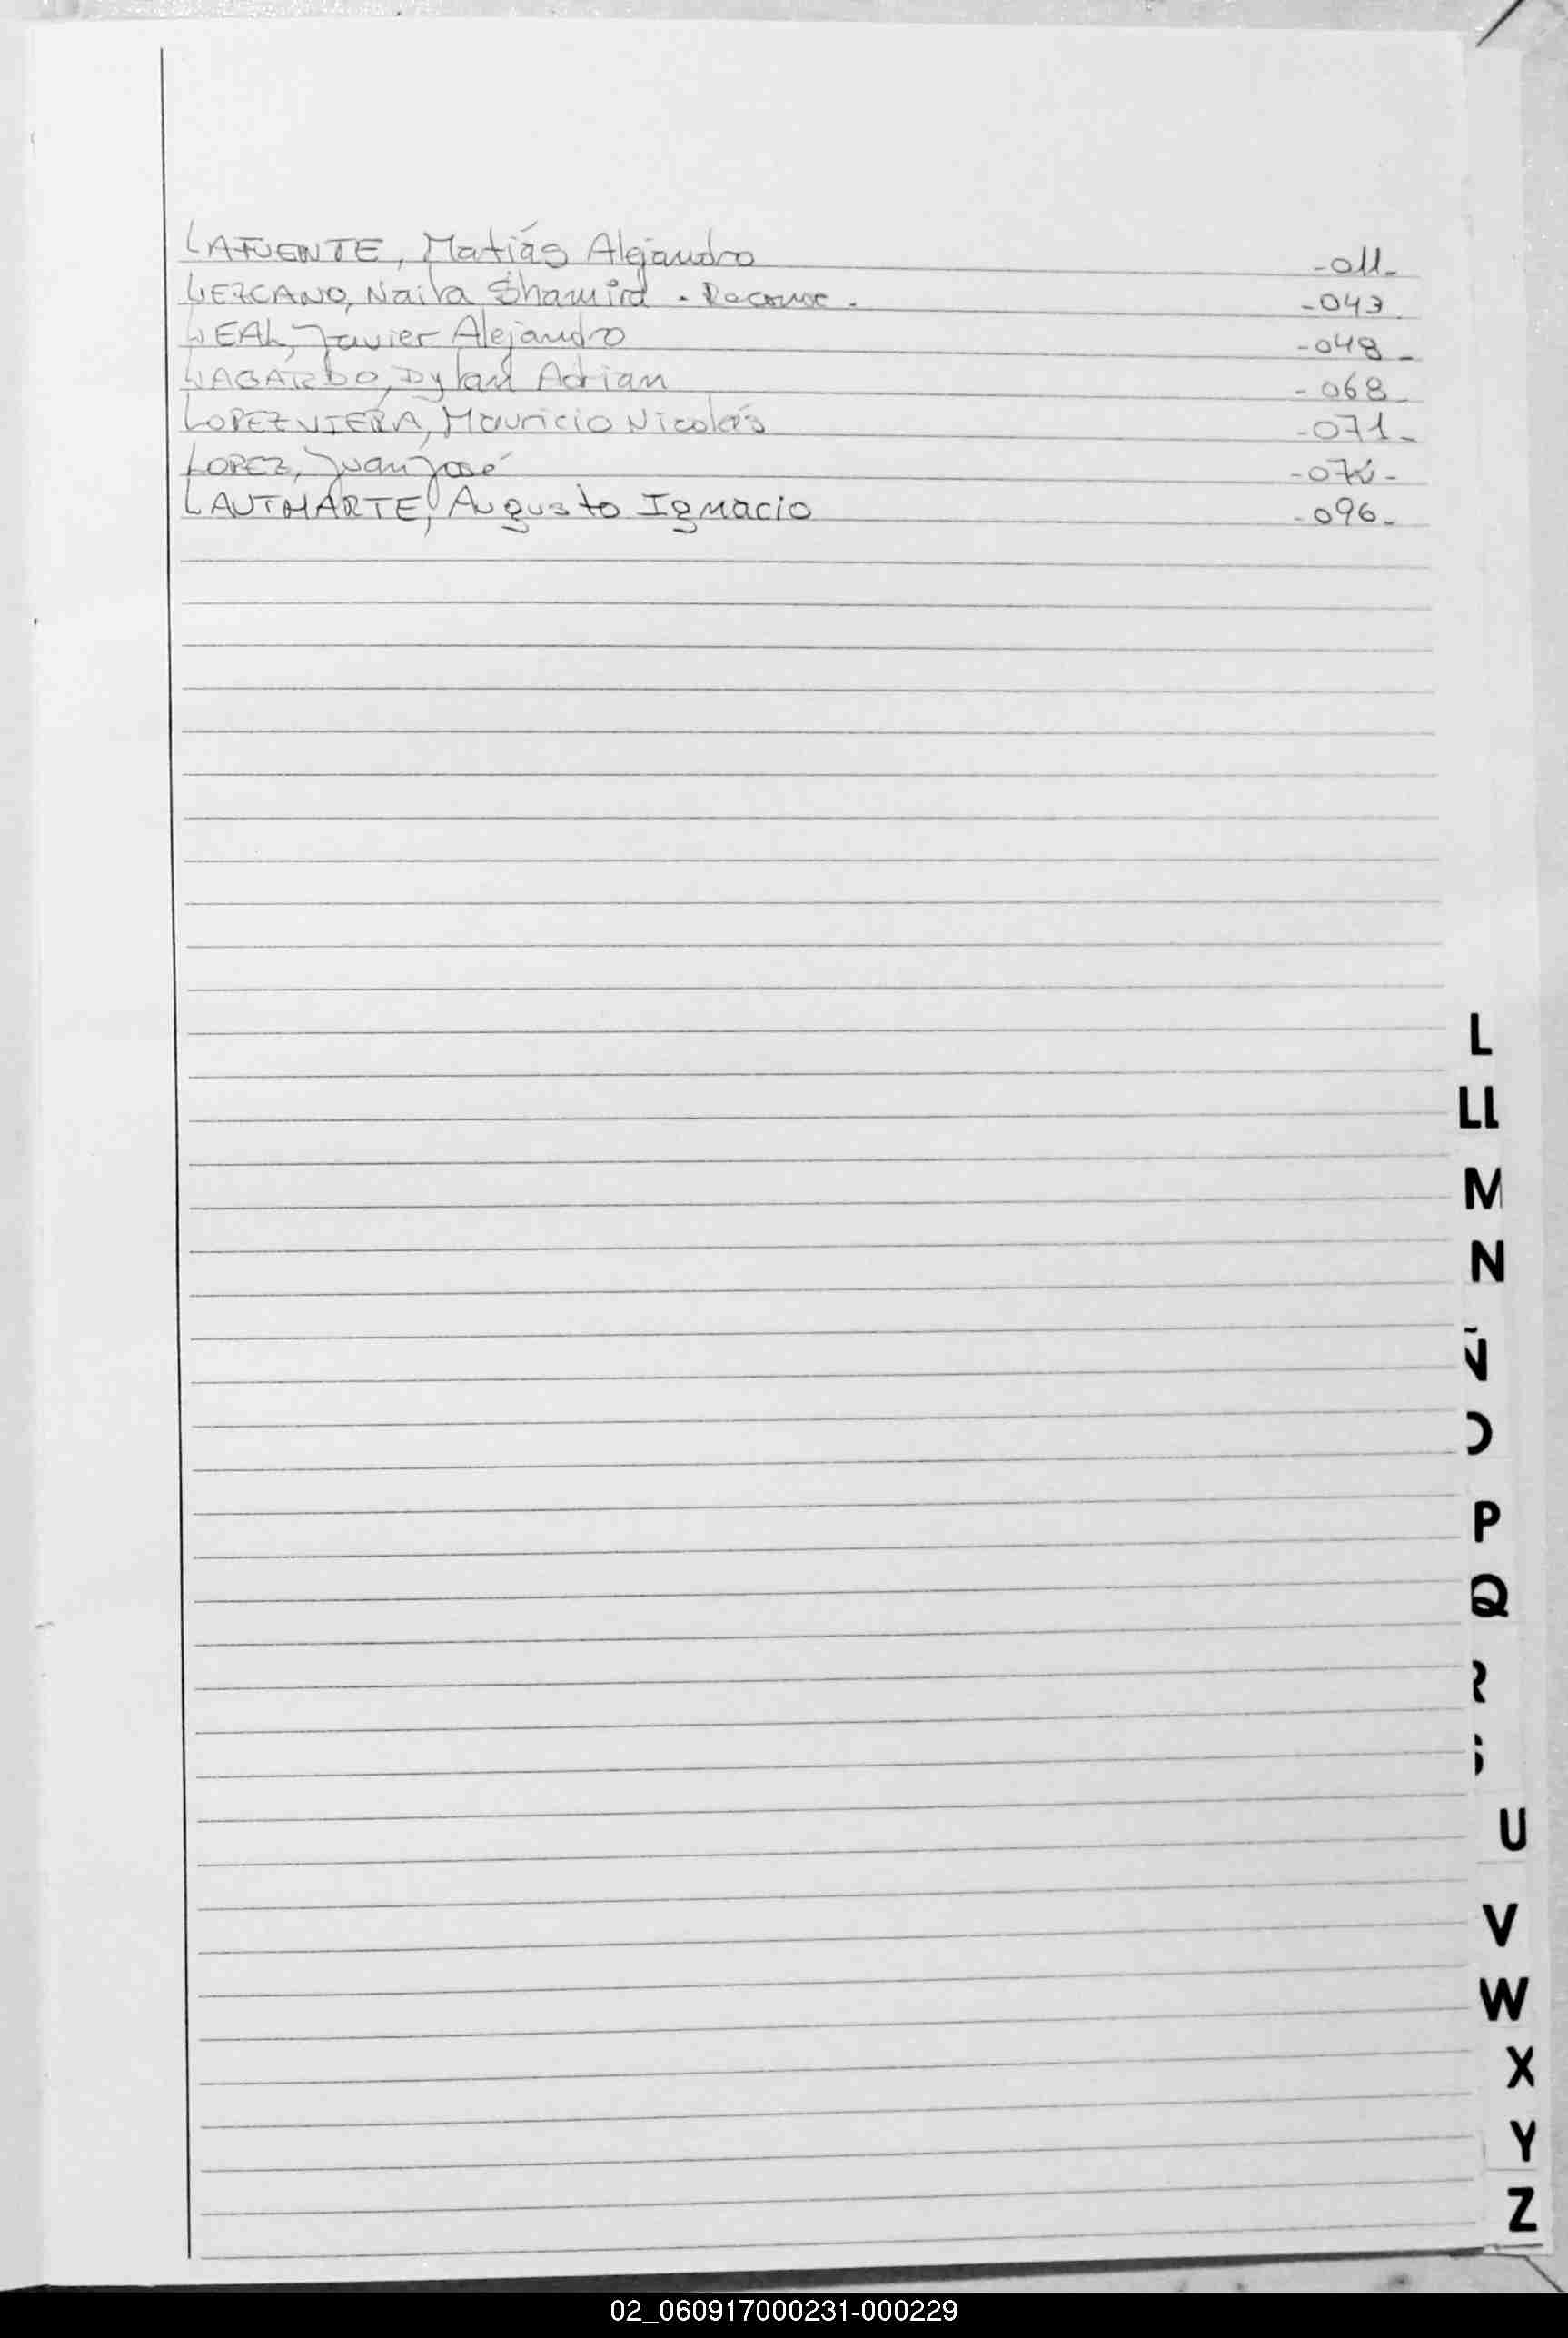 LAFUENTE, Matiás Alejandro -011-
LEZCANO, Naila Shamira - Reconoc. -043.
LEAL, Javier Alejandro -048-
LAGARDO, Dylan Adrian -068-
LOPEZ VIERA, Mauricio Nicolás -071-
LOPEZ, Juan José
LAUTMARTE, Augusto Ignacio -096-
L
LL
M
N
Ñ
O
P
Q
R
S
U
V
W
X
Y
Z
02_060917000231-000229